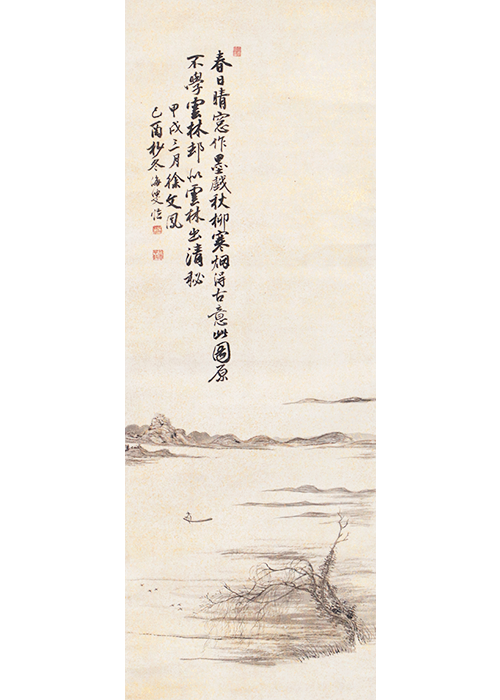 春日晴窓作墨戲秋柳寒烟得古意此圖原
不學雲林却似雲林出清秘
甲戌三月徐文鳳
己酉杪冬海叟臨